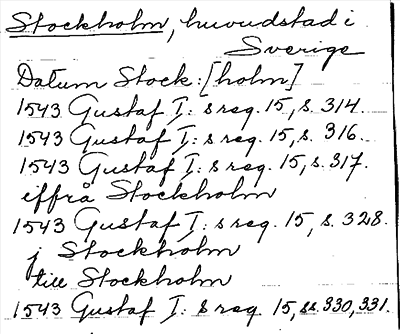 Stockholm, huvudstad i
Sverige
Datum Stock:[holm]
1543 Gustaf I: s reg. 15, s. 314.
1543 Gustaf I: s reg. 15, s. 316.
1543 Gustaf I: s reg. 15, s. 317.
iffrå Stockholm
1543 Gustaf I: s reg. 15, s. 328.
j Stockholm
till Stockholm
1543 Gustaf I: s reg. 15, ss. 330, 331.